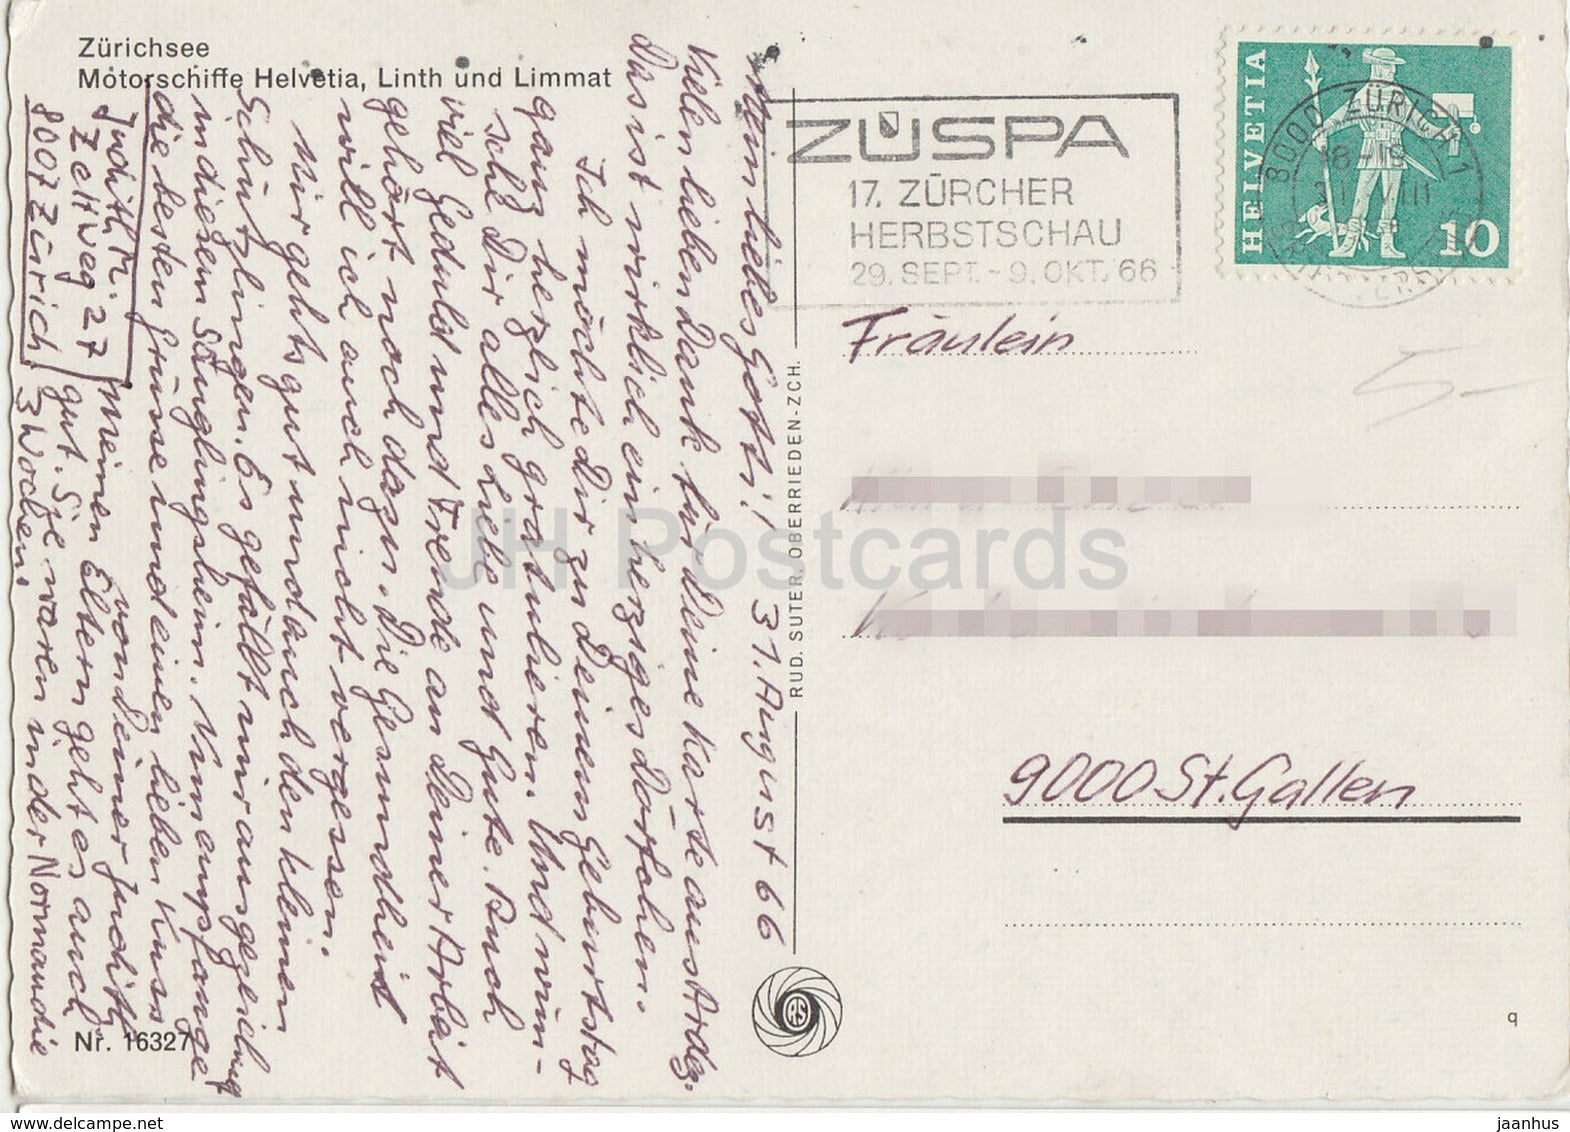 Zürichsee
Motorschiffe Helvetia, Linth und Limmat
Mein liebes Gotti! 31. August 66
Vielen lieben Dank für Deine Karte aus Ardez.
Das ist wirklich ein herziges Dörfchen.
Ich möchte Dir zu Deinem Geburtstag
ganz herzlich gratulieren. Und wün-
sche Dir alles Liebe und Gute. Auch
viel Geduld und Freude an Deiner Arbeit
gehört noch dazu. Die Gesundheit
will ich auch nicht vergessen.
Mir gehts gut und auch den kleinen
Schützlingen. Es gefällt mir ausgezeichnet
in diesem Säuglingsheim. Nun empfange
die besten Grüsse und einen lieben Kuss
von Deiner Judith
Judith M.
Zeltweg 27
8007 Zürich
Meinen Eltern geht es auch
gut. Sie waren in der Normandie
3 Wochen.
Nr. 16327
RUD. SUTER, OBERRIEDEN-ZCH.
RS
ZÜSPA
17. ZÜRCHER
HERBSTSCHAU
29. SEPT. - 9. OKT. 66
HELVETIA
10
8000 ZÜRICH 1
Fräulein
5-
9000 St. Gallen
q
JH Postcards
www.delcampe.net
jaanhus